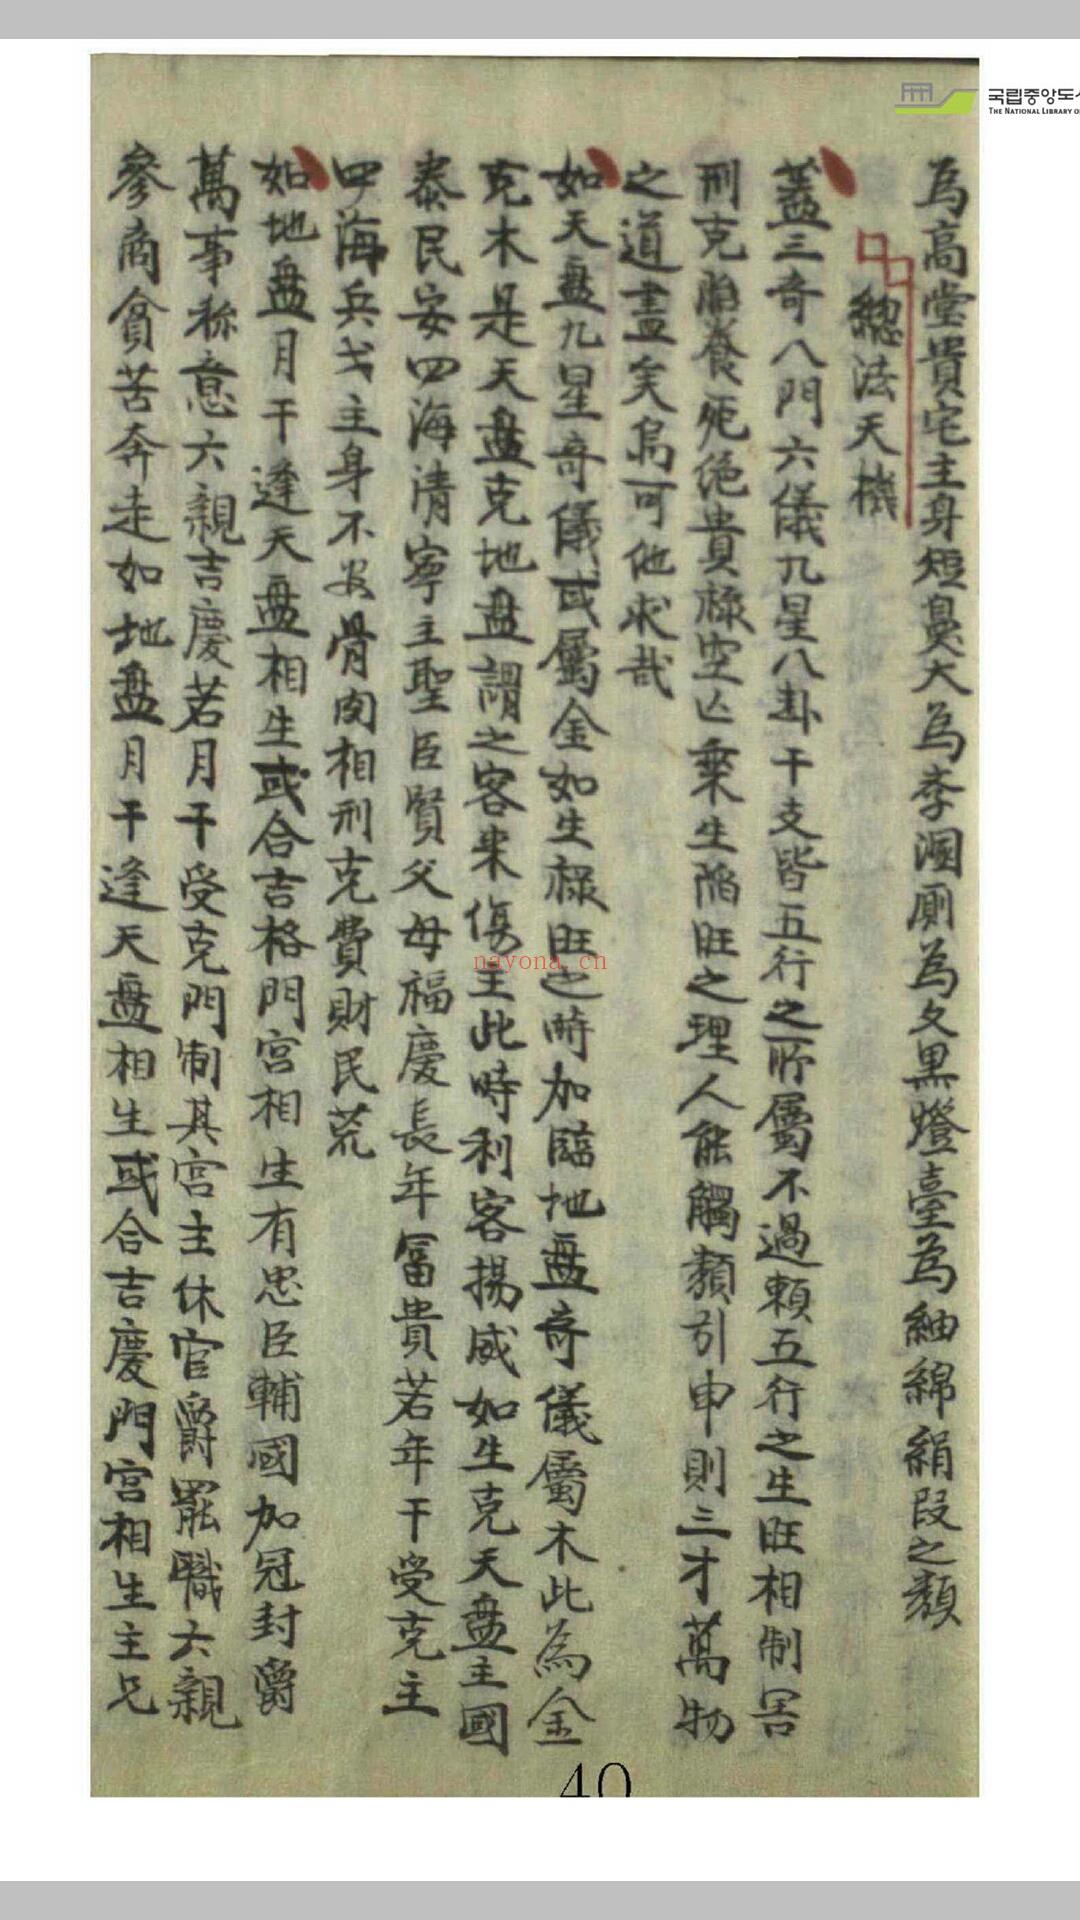 국립중앙도서
THE NATIONAL LIBRARY OF
為高堂貴宅主身短鼻大為李溷厠為文黑燈臺為紬綿絹段之類
總法天機
蓋三奇八門六儀九星八卦干支皆五行之所屬不過賴五行之生旺相制害
刑克胎養死絕貴祿空亡乘生陷旺之理人能觸類引申則三才萬物
之道盡矣烏可他求哉
如天盤九星奇儀或屬金如生祿旺之時加臨地盤奇儀屬木此為金
克木是天盤克地盤謂之客來傷主此時利客揚威如生克天盤主國
泰民安四海清寧主聖臣賢父母福慶長年冨貴若年干受克主
四海兵戈主身不安骨肉相刑克費財民荒
如地盤月干逢天盤相生或合吉格門宮相生有忠臣輔國加冠封爵
萬事称意六親吉慶若月干受克門制其宮主休官爵罷職六親
參商貧苦奔走如地盤月干逢天盤相生或合吉慶門宮相生主兄
nayona.cn
40